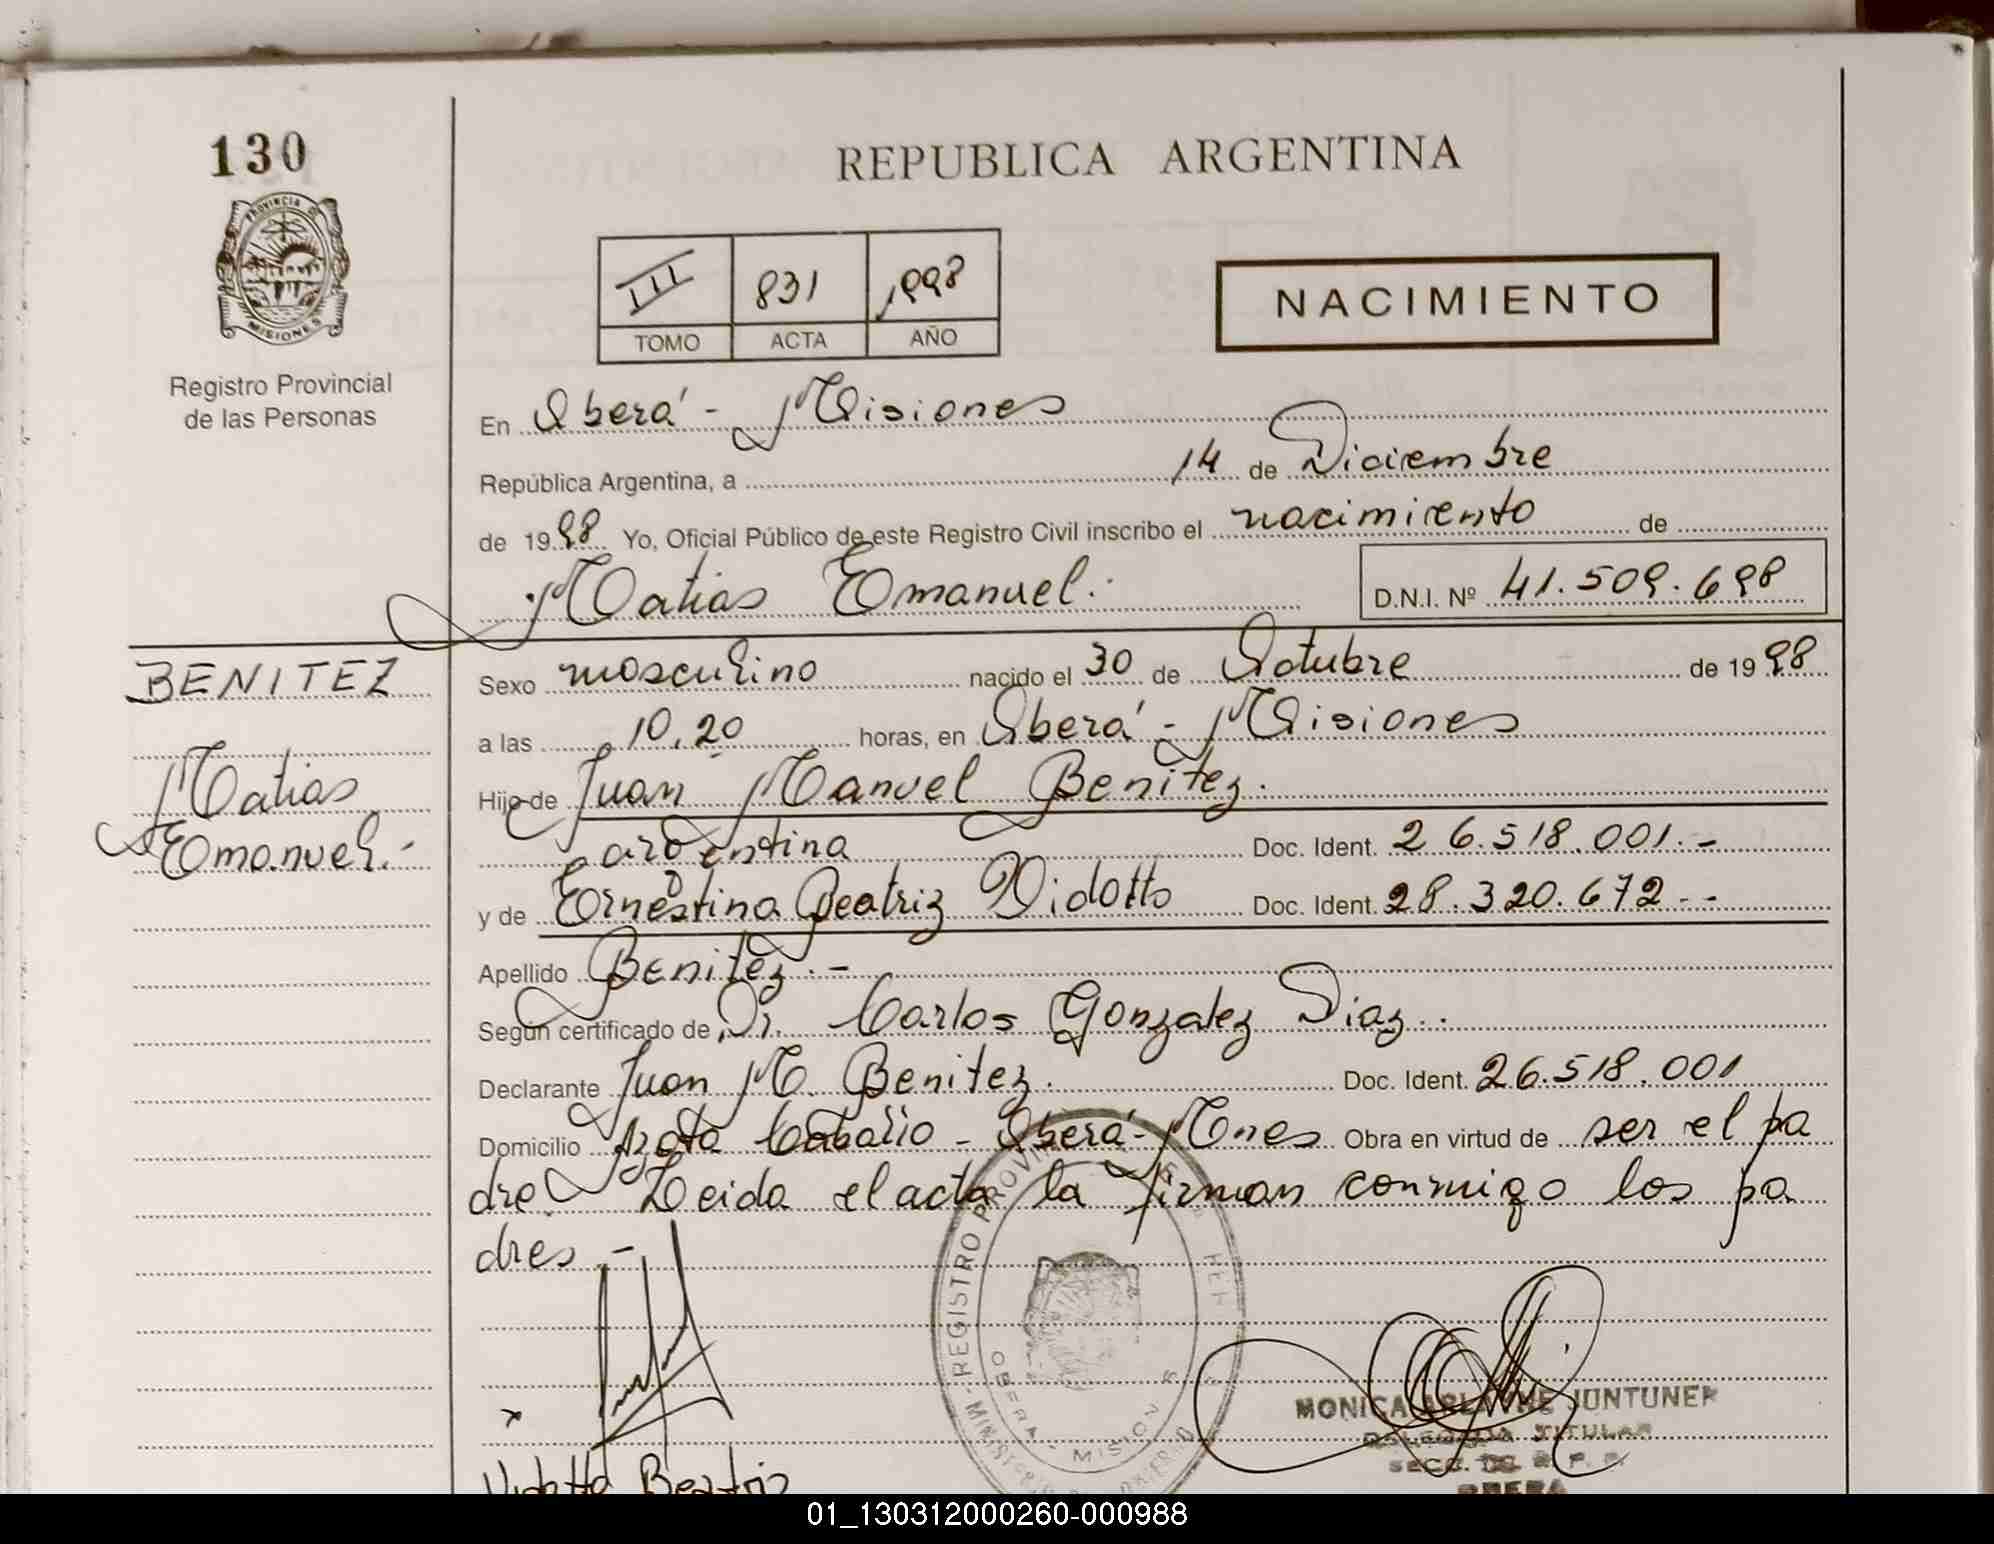 130
REPUBLICA ARGENTINA
PROVINCIA DE
MISIONES
Registro Provincial
de las Personas
III 831 1998
TOMO ACTA AÑO
NACIMIENTO
En Oberá - Misiones
República Argentina, a 14 de Diciembre
de 1998 Yo, Oficial Público de este Registro Civil inscribo el nacimiento de
Matias Emanuel.
D.N.I. Nº 41.509.698
BENITEZ
Matias
Emanuel.-
Sexo masculino nacido el 30 de Octubre de 1998
a las 10,20 horas, en Oberá - Misiones
Hijo de Juan Manuel Benitez.
argentina Doc. Ident. 26.518.001.-
y de Ernestina Beatriz Vidotto Doc. Ident. 28.320.672--
Apellido Benitez.-
Según certificado de Dr. Carlos Gonzalez Diaz..
Declarante Juan M. Benitez. Doc. Ident. 26.518.001
Domicilio - Oberá - Mnes Obra en virtud de ser el pa
dre. Leida el acta la firman conmigo los pa
dres -
REGISTRO PROVINCIAL
OBERA - MISIONES
MONICA JUNTUNEN
TITULAR
OBERA
Beatriz
01_130312000260-000988